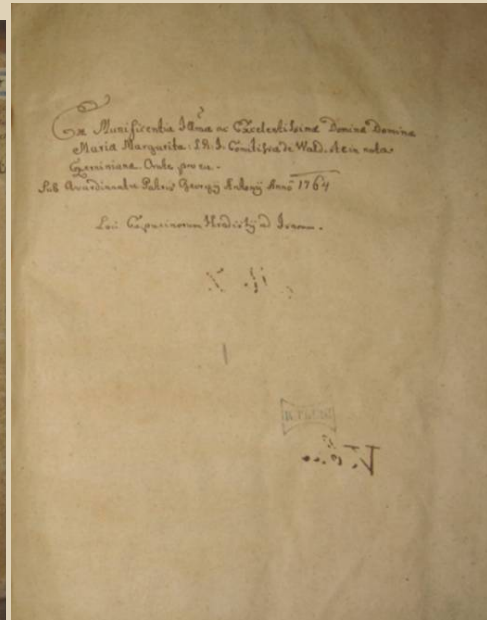 Ex Munificentia Illmae ac Excelentissimae Dominae Dominae
Maria Margarita: S. R. I. Comitissa de Wald. Stein nata
Czerniniana Orate pro ea.
Sub Guardianatu Patris Georgij Antonij Anno 1764
Loci Capucinorum Hradistij ad Iseram.